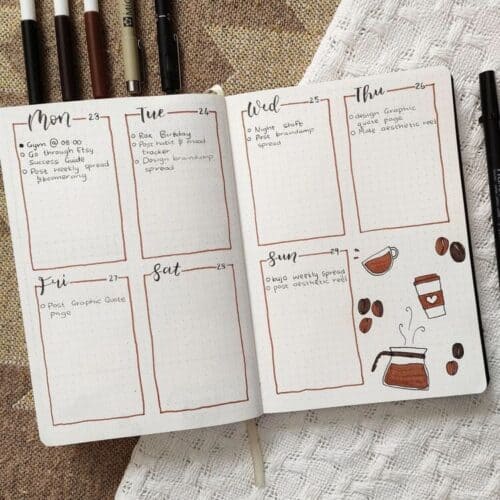 Mon 23
Gym @ 06:00
Go through Etsy
Success Guide
Post weekly spread
& boomerang
Tue 24
Rae Birthday
Post habit & mood
tracker
Design braindump
spread
Wed 25
Night shift
Post braindump
spread
Thu 26
design Graphic
quote page
Make aesthetic reel
Fri 27
Post Graphic Quote
page
Sat 28
Sun 29
bujo weekly spread
post aesthetic reel